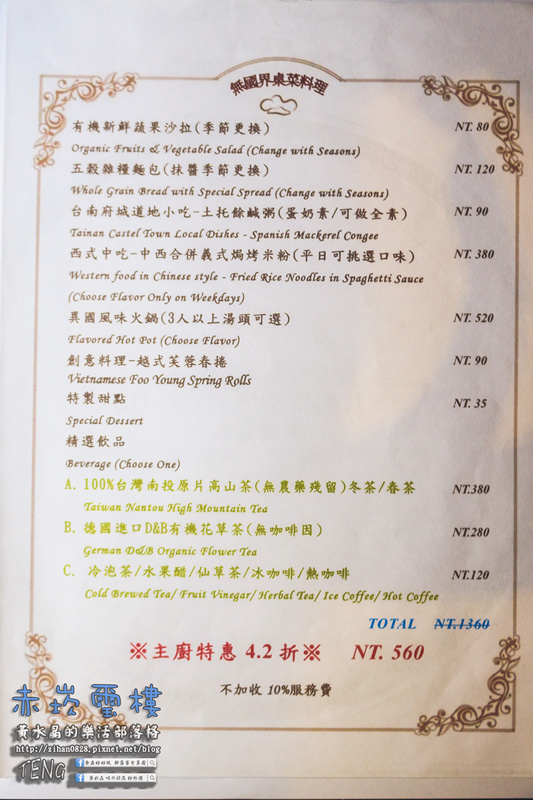 無國界桌菜料理
有機新鮮蔬果沙拉(季節更換) NT. 80
Organic Fruits & Vegetable Salad (Change with Seasons)
五穀雜糧麵包(抹醬季節更換) NT. 120
Whole Grain Bread with Special Spread (Change with Seasons)
台南府城道地小吃-土托餘鹹粥(蛋奶素/可做全素) NT. 90
Tainan Castel Town Local Dishes - Spanish Mackerel Congee
西式中吃-中西合併義式焗烤米粉(平日可挑選口味) NT. 380
Western food in Chinese style - Fried Rice Noodles in Spaghetti Sauce
(Choose Flavor Only on Weekdays)
異國風味火鍋(3人以上湯頭可選) NT. 520
Flavored Hot Pot (Choose Flavor)
創意料理-越式芙蓉春捲 NT. 90
Vietnamese Foo Young Spring Rolls
特製甜點 NT. 35
Special Dessert
精選飲品
Beverage (Choose One)
A. 100%台灣南投原片高山茶(無農藥殘留)冬茶/春茶 NT.380
Taiwan Nantou High Mountain Tea
B. 德國進口D&B有機花草茶(無咖啡因) NT.280
German D&B Organic Flower Tea
C. 冷泡茶/水果醋/仙草茶/冰咖啡/熱咖啡 NT.120
Cold Brewed Tea/ Fruit Vinegar/ Herbal Tea/ Ice Coffee/ Hot Coffee
TOTAL NT.1360
※主廚特惠 4.2 折※ NT. 560
不加收 10%服務費
赤崁璽樓
黃水晶的樂活部落格
http://zihan0828.pixnet.net/blog
TENG